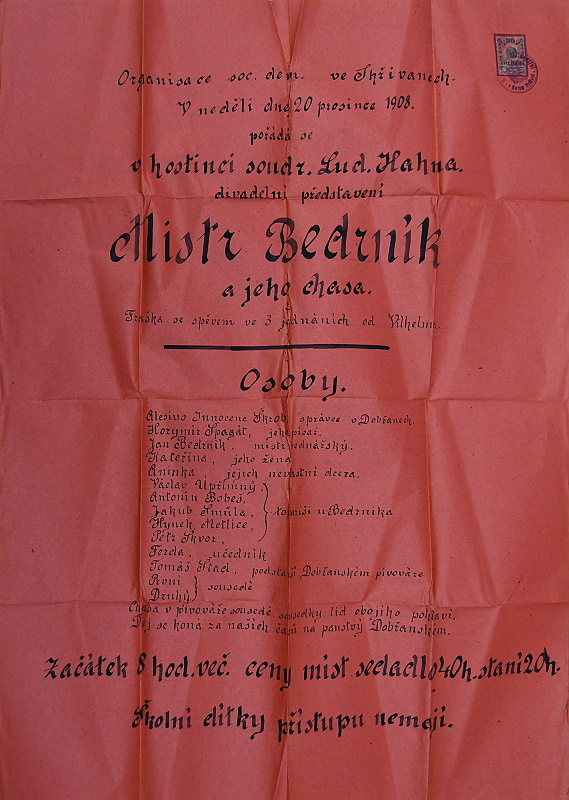 Organisace soc. dem. ve Skřivanech.
V neděli dne 20 prosince 1908.
pořádá se
v hostinci soudr. Lud. Hahna.
divadelní představení
Mistr Bedrník
a jeho chasa.
Fraška se spěvem ve 3 jednáních od Vilhelma.
Osoby.
Alesius Innocenc Škrob, správce v Dobřanech.
Horymír Špagát, jeho písař.
Jan Bedrník, mistr bednářský.
Kateřina, jeho žena
Aninka, jejich nevlastní dcera.
Václav Upřímný,
Antonín Bobeš,
Jakub Šmůla, tovaryši u Bedrníka
Hynek Metlice,
Petr Škvor,
Ferda, učedník
Tomáš Slad, podstarší v Dobřanském pivováře
První
Druhý sousedé
Chasa v pivováře sousedé sousedky lid obojího pohlaví.
Děj se koná za našich časů na panství Dobřanském.
Začátek 8 hod. več. ceny míst sedadlo 40 h. stání 20 h.
Školní dítky přístupu nemají.